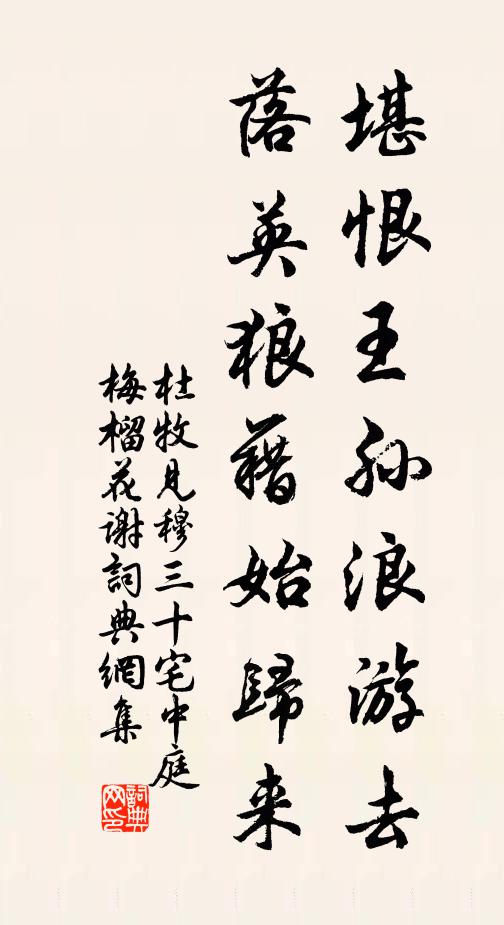 堪恨王孫浪游去
落英狼藉始歸来
杜牧見穆三十宅中庭
梅榴花謝詞典網集
詞典
网印